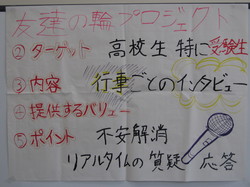 友達の輪プロジェクト
②ターゲット 高校生 特に受験生
③内容 行事ごとのインタビュー
④提供するバリュー
⑤ポイント 不安解消
リアルタイムの質疑応答